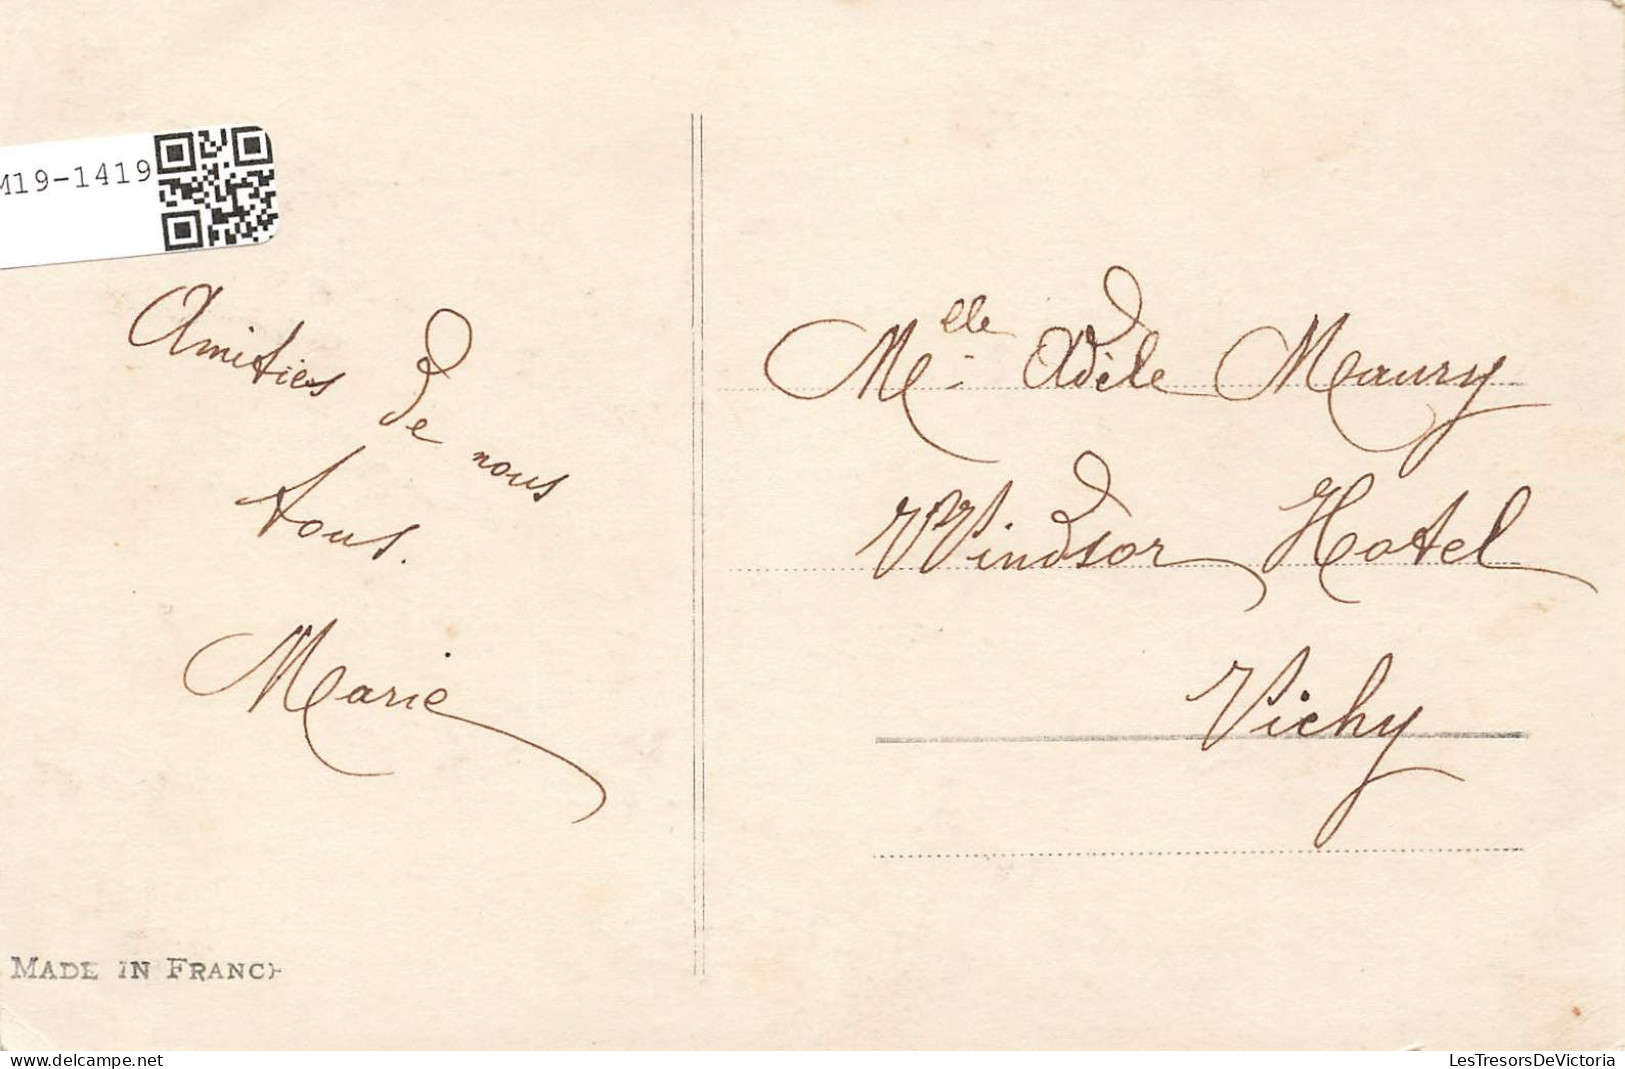 M19-1419
Amities de nous
tous.
Marie
MADE IN FRANCE
Melle Adèle Maury
Windsor Hotel
Vichy
delcampe.net
LesTresorsDeVictoria